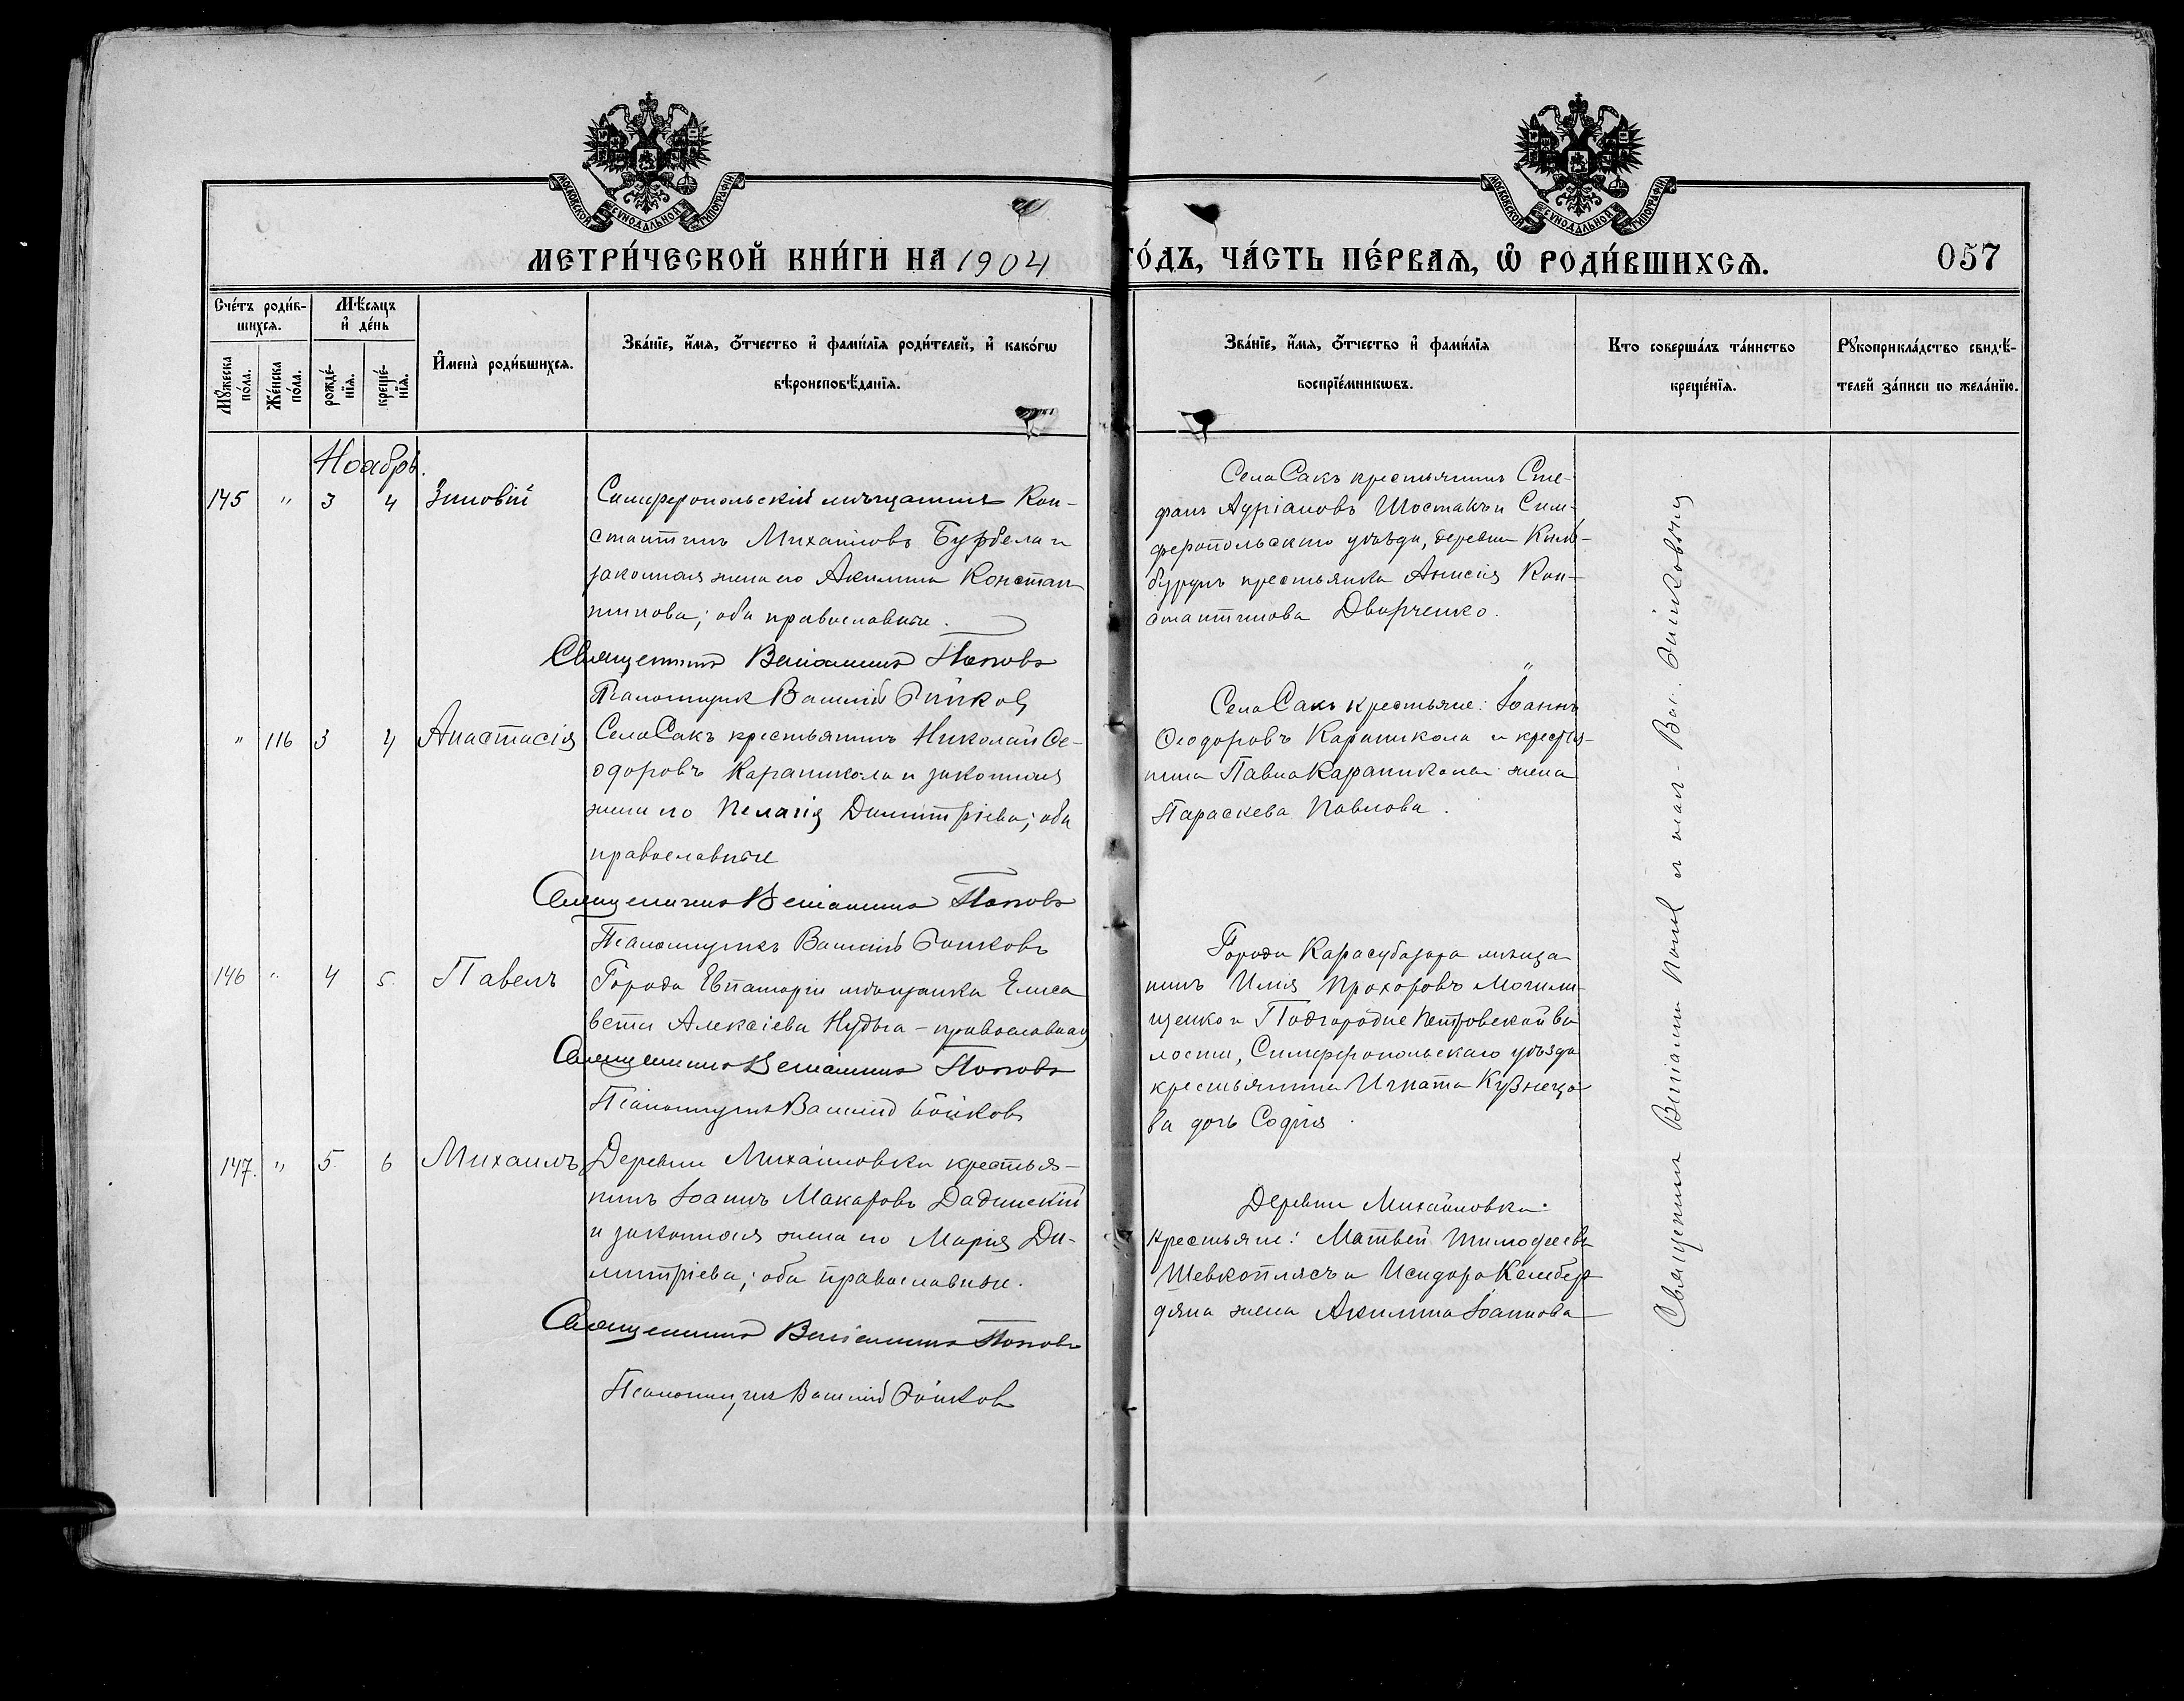 МОСКОВСКОЙ СѴНОДАЛЬНОЙ ТИПОГРАФІИ
МОСКОВСКОЙ СѴНОДАЛЬНОЙ ТИПОГРАФІИ
МЕТРИ́ЧЕСКОЙ КНИ́ГИ НА 1904 ГО́ДЪ, ЧА́СТЬ ПЕ́РВАѦ, Ѽ РОДИ́ВШИХСѦ.
057
Сче́тъ роди́в-
шихсѧ.
Мꙋ́жеска по́ла.
Же́нска по́ла.
Мѣ́сѧцъ
и҆ де́нь
рожде́-
нїѧ.
креще́-
нїѧ.
И҆мена̀ роди́вшихсѧ.
Зва́нїе, и҆́мѧ, ѻ҆́тчество и҆ фами́лїѧ роди́телей, и҆ како́гѡ
вѣроисповѣ́данїѧ.
Зва́нїе, и҆́мѧ, ѻ҆́тчество и҆ фами́лїѧ
воспрїе́мникѡвъ.
Кто соверша́лъ та́инство
креще́нїѧ.
Рꙋкоприкла́дство свидѣ́-
телей за́писи по жела́нїю.
Ноябрь.
145 " 3 4 Зиновій
Симферопольскій мѣщанинъ Кон-
стантинъ Михаиловъ Бурбела и
законная жена его Акилина Констан
тинова; оба православные.
Священникъ Веніаминъ Поповъ
Псаломщикъ Василій Бойковъ
Села Сакъ крестьянинъ Сте-
фанъ Адріановъ Шостакъ и Сим-
феропольскаго уѣзда, деревни Киль-
бурунъ крестьянка Анисія Кон-
стантинова Дворченко.
" 116 3 4 Анастасія
Села Сакъ крестьянинъ Николай Ѳе-
одоровъ Караникола и законная
жена его Пелагія Димитріева; оба
православные
Священникъ Веніаминъ Поповъ
Псаломщикъ Василій Бойковъ
Села Сакъ крестьяне: Іоаннъ
Ѳеодоровъ Караникола и крестья-
нина Павла Караникола жена
Параскева Павлова.
146 " 4 5. Павелъ
Города Евпаторіи мѣщанка Елиса
вета Алексіева Нудьга - православная
Священникъ Веніаминъ Поповъ
Псаломщикъ Василій Бойковъ
Города Карасубазара мѣща
нинъ Илія Прохоровъ Могили-
щенко и Подгородне Петровской во
лости, Симферопольскаго уѣзда
крестьянина Игната Кузнецо-
ва дочь Софія.
147. " 5. 6 Михаилъ
Деревни Михайловки крестья-
нинъ Іоаннъ Макаровъ Дадинскій
и законная жена его Марія Ди-
митріева; оба православные.
Священникъ Веніаминъ Поповъ
Псаломщикъ Василій Бойковъ
Деревни Михайловки
крестьяне: Матвѣй Тимоѳеевъ
Шевкоплясъ и Исидора Кембер
дяна жена Акилина Іоаннова
Священникъ Веніаминъ Поповъ и псал. Вас. Бойковъ